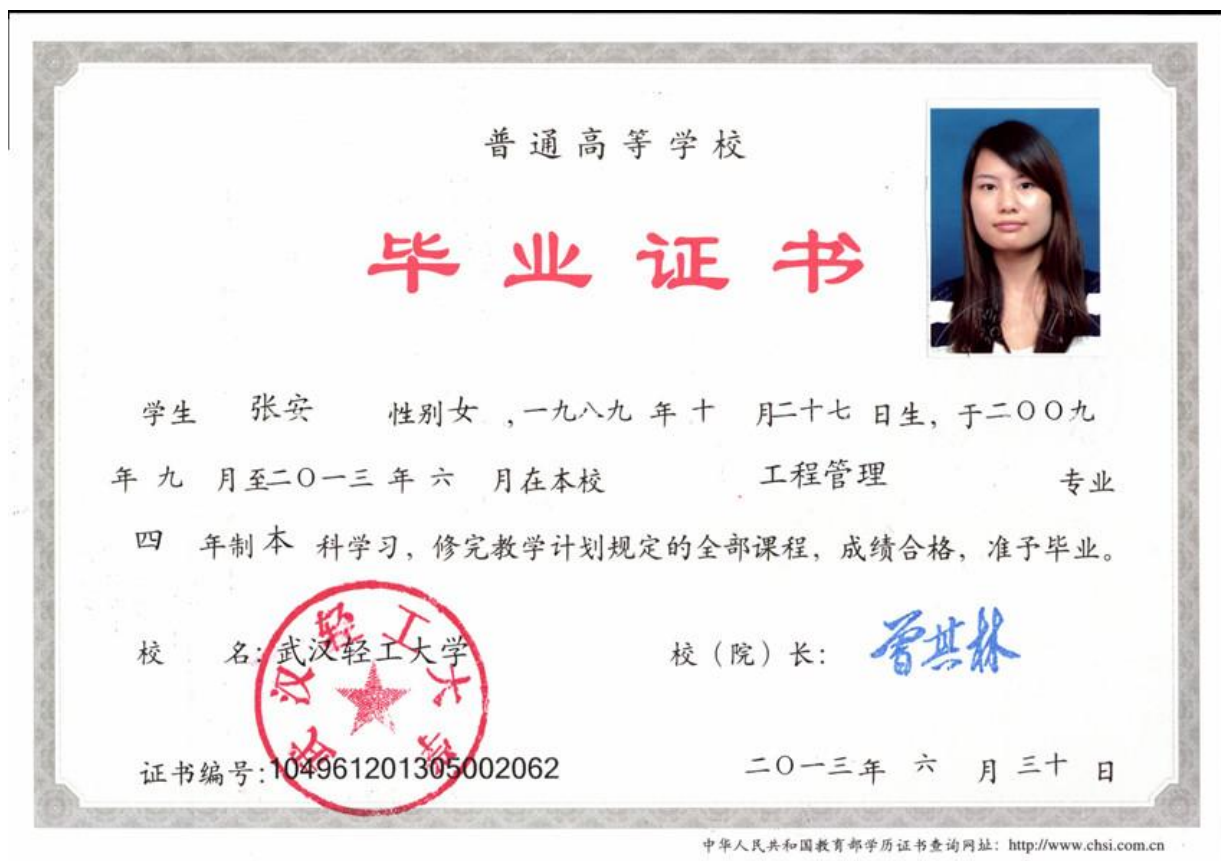 普通高等学校
毕业证书
学生 张安 性别女 ,一九八九 年 十 月二十七 日生, 于二〇〇九
年 九 月至二〇一三 年 六 月在本校 工程管理 专业
四 年制 本 科学习, 修完教学计划规定的全部课程, 成绩合格, 准予毕业。
武汉轻工大学
校 名: 武汉轻工大学 校（院）长: 曾其林
证书编号:104961201305002062 二〇一三年 六 月 三十 日
中华人民共和国教育部学历证书查询网址: http://www.chsi.com.cn